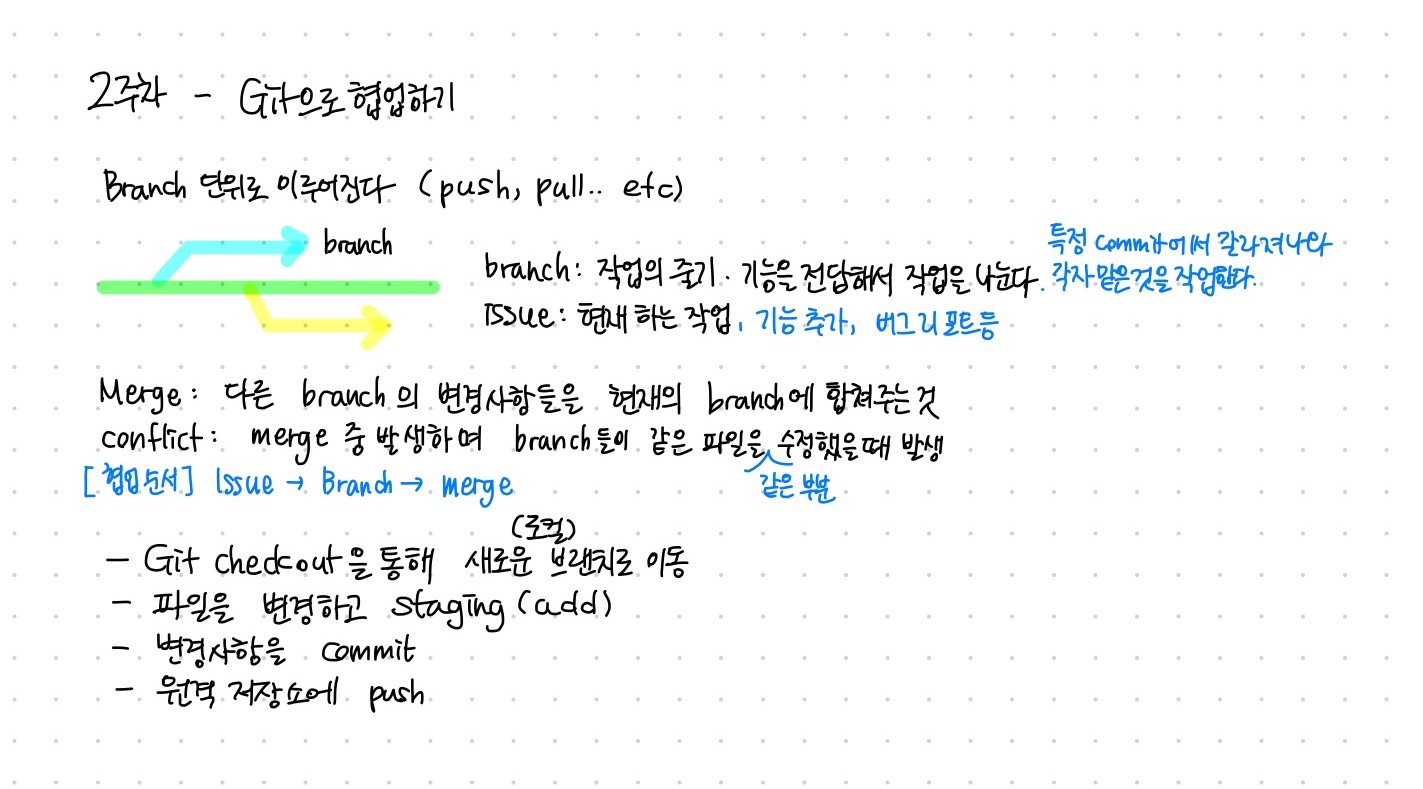 2주차 - Git으로 협업하기
Branch 단위로 이루어진다 (push, pull.. etc)
branch
branch: 작업의 줄기. 기능을 전담해서 작업을 나눈다.
특정 commit에서 갈라져나와
각자 맡은것을 작업한다.
Issue: 현재 하는 작업, 기능 추가, 버그 리포트 등
Merge: 다른 branch의 변경사항들을 현재의 branch에 합쳐주는것
conflict: merge 중 발생하며 branch들이 같은 파일을 수정했을때 발생
같은 부분
[협업순서] Issue → Branch → merge
(로컬)
- Git checkout을 통해 새로운 브랜치로 이동
- 파일을 변경하고 staging (add)
- 변경사항을 commit
- 원격 저장소에 push